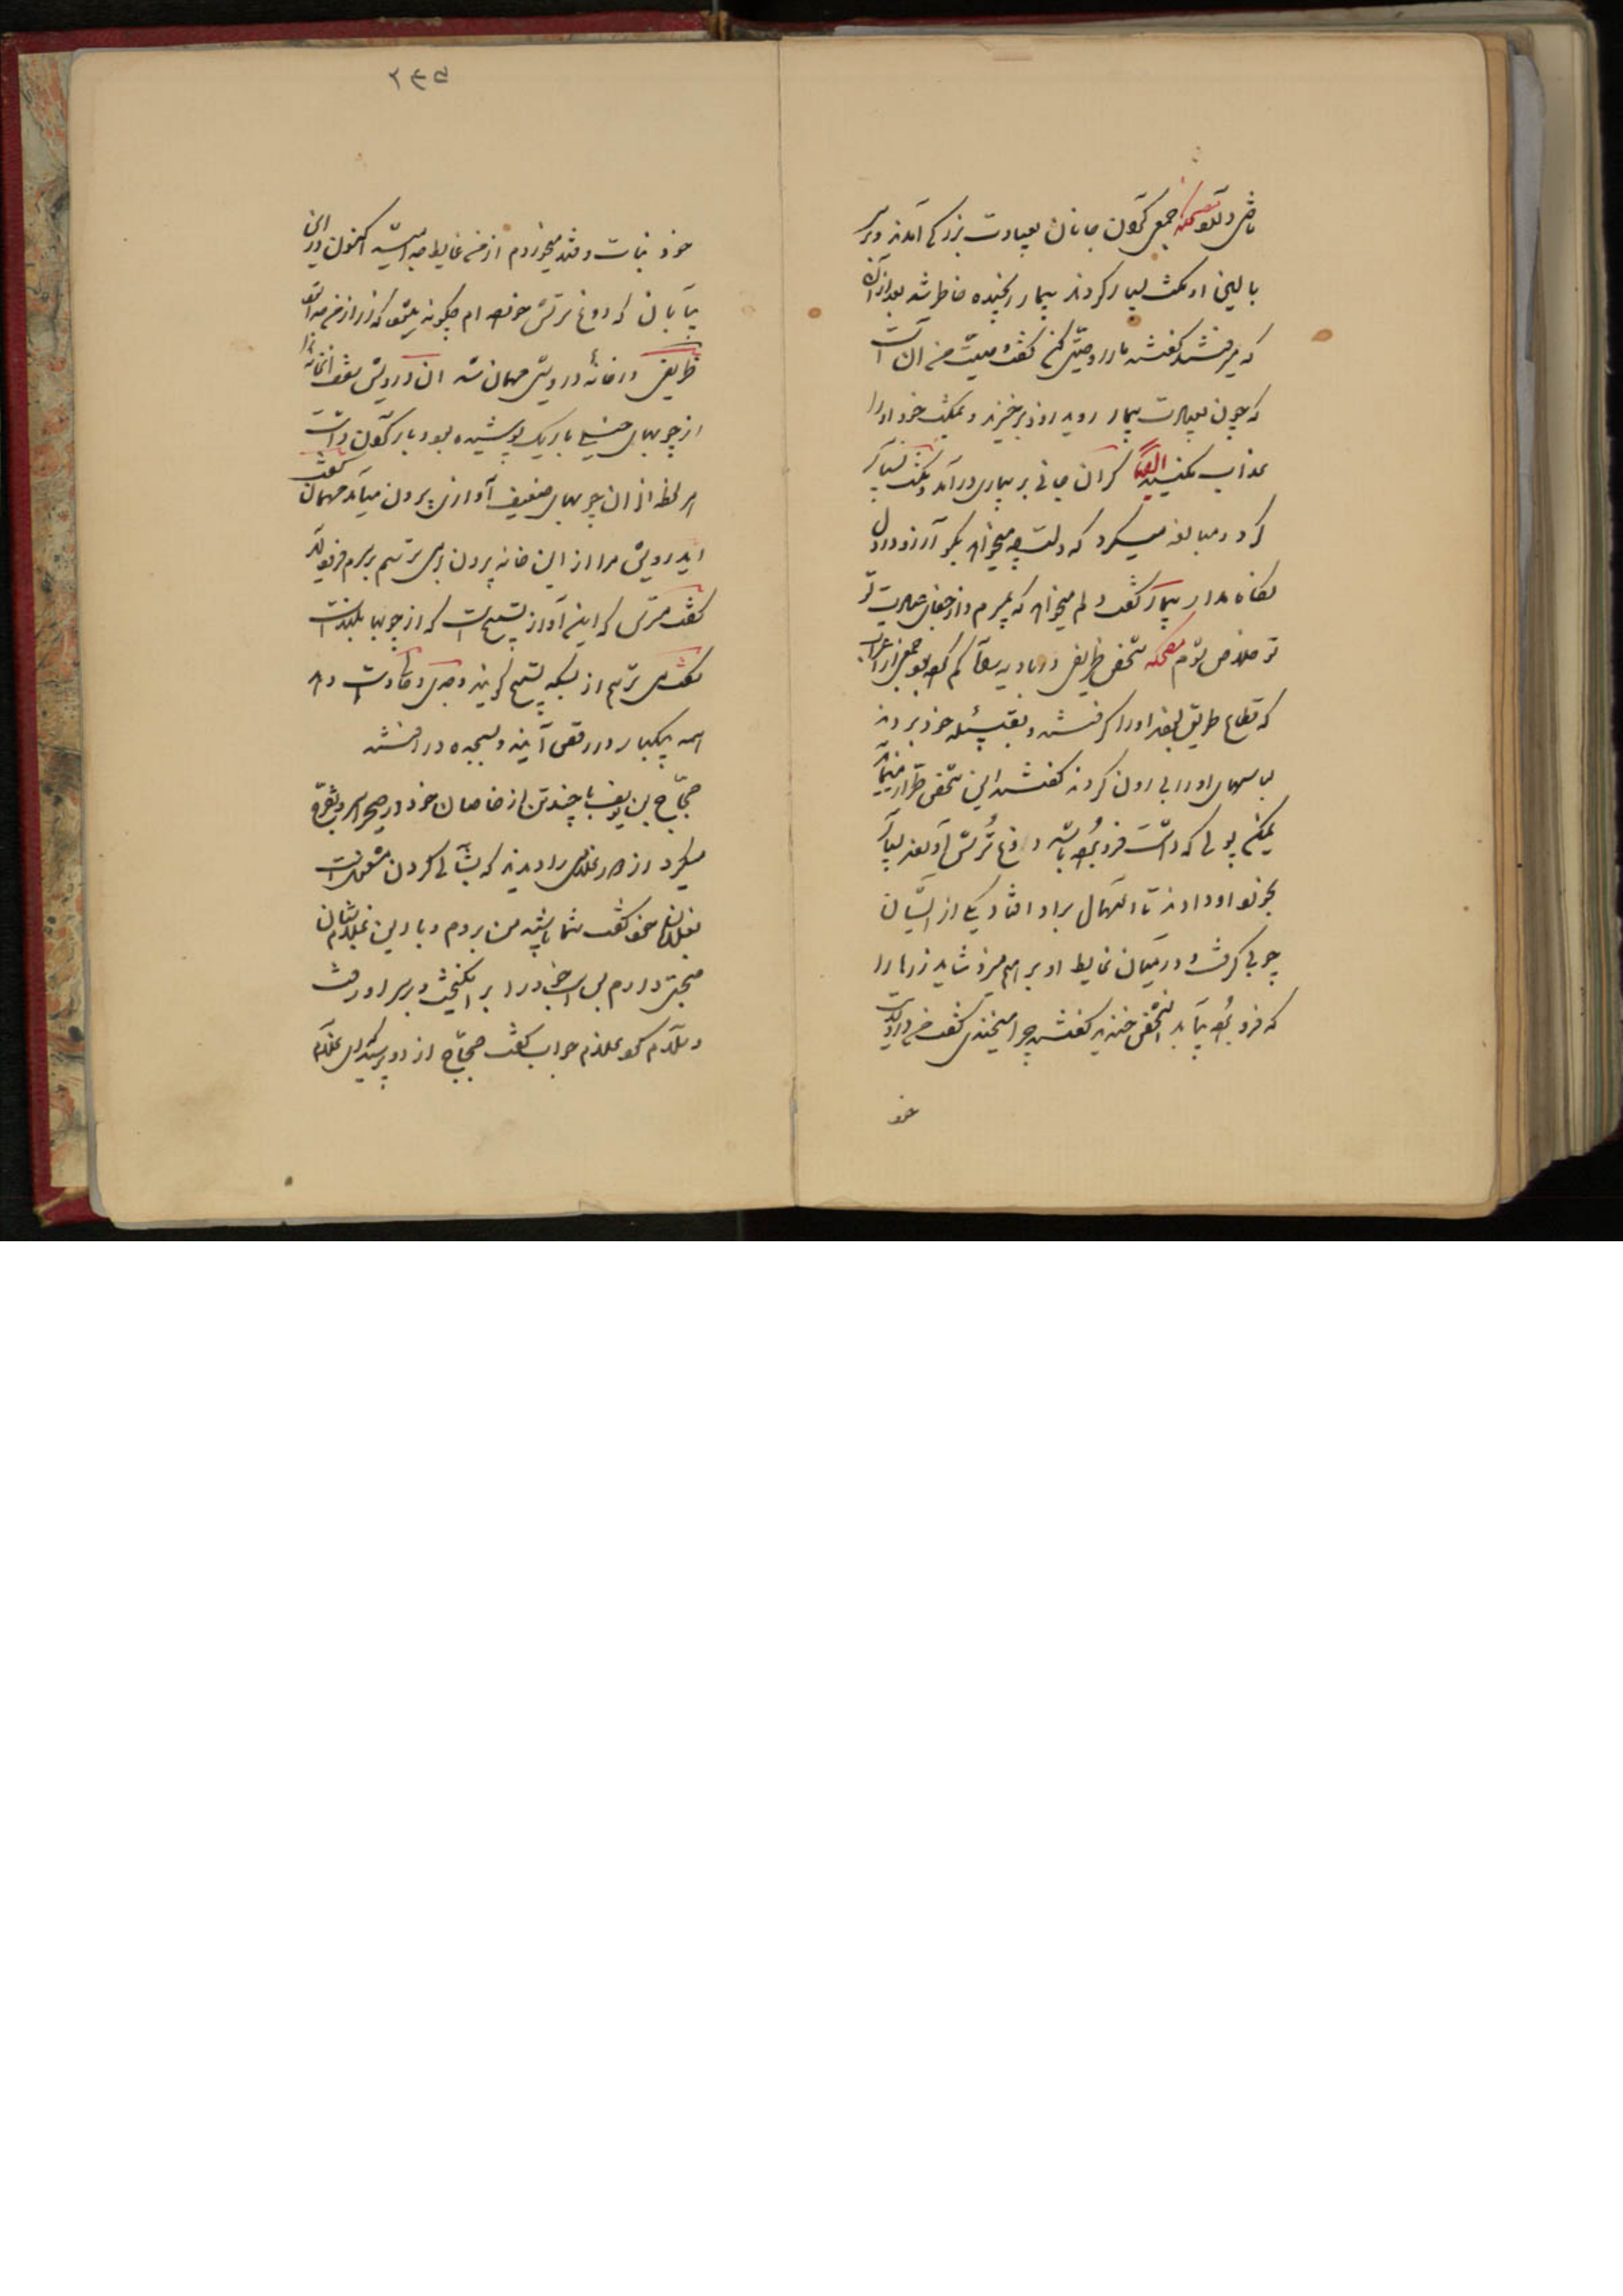 جمعی گران جانان بعیادت بزرگی آمدند و بر سر
بالین او مکث بسیار کردند بیمار رنجیده خاطر شد بعد از آن
که میرفتند گفتند ما را وصیتی کن گفت وصیت من آن است
که چون بعیادت بیمار روید زود برخیزید و بمکث خود او را
عذاب مکنید ایضا گران جانی بر بیماری درآمد و مکث بسیار
کرد و مبالغه میکرد که دلت چه میخواهد بگو آرزو در دل
نگاه مدار بیمار گفت دلم میخواهد که بمیرم و از جفای عیادت تو
تو خلاص شوم مضحکه شخصی ظریفی در بادیه جمعی از اعراب
که قطاع طریق بودند او را گرفتند و بقبیله خود بردند
لباسهای او را بیرون کردند گفتند این شخص طرار مینماید
یمکن پولی که داشت فرو برده باشد دوغ ترش آوردند بسیار
بخورد او دادند تا اسهال بر او افتاد یکی از ایشان
چوبی گرفت و در میان غایط او برهم میزد شاید زرها را
که فرو برده بیابد آنشخص خندید گفتند چرا میخندی گفت من در ولایت
خود
۲۶۵
خود نبات و قند میخوردم از من غایط جدا میشد اکنون در این
بیابان که دوغ ترش خورده ام چگونه میشود که زر از من جدا شود
ظریفی در خانهٔ درویشی مهمان شد آن درویش سقف آنخانه را
از چوبهای خیلی باریک پوشیده بود و بار گران داشت
هر لحظه از آن چوبهای ضعیف آوازی بیرون میآمد مهمان گفت
ایدرویش مرا از این خانه بیرون بر می ترسم بر سرم فرود آید
گفت مترس که این آواز تسبیح است که از چوبها بلند است
گفت می ترسم از بسکه تسبیح گویند وجدی و حالت دهد
همه بیکبار در رقص آیند و بسجده در افتند
حجاج بن یوسف با چند تن از خاصان خود در صحرا سیر و تفرج
میکرد از دور غلامی را دیدند که بشبانی کردن مشغول است
بغلامان خود گفت شما باشید من بروم و با این غلام شبان
صحبتی دارم پس اسب خود را برانگیخت و بر سر او رفت
و سلام کرد غلام جواب گفت حجاج از او پرسید ای غلام